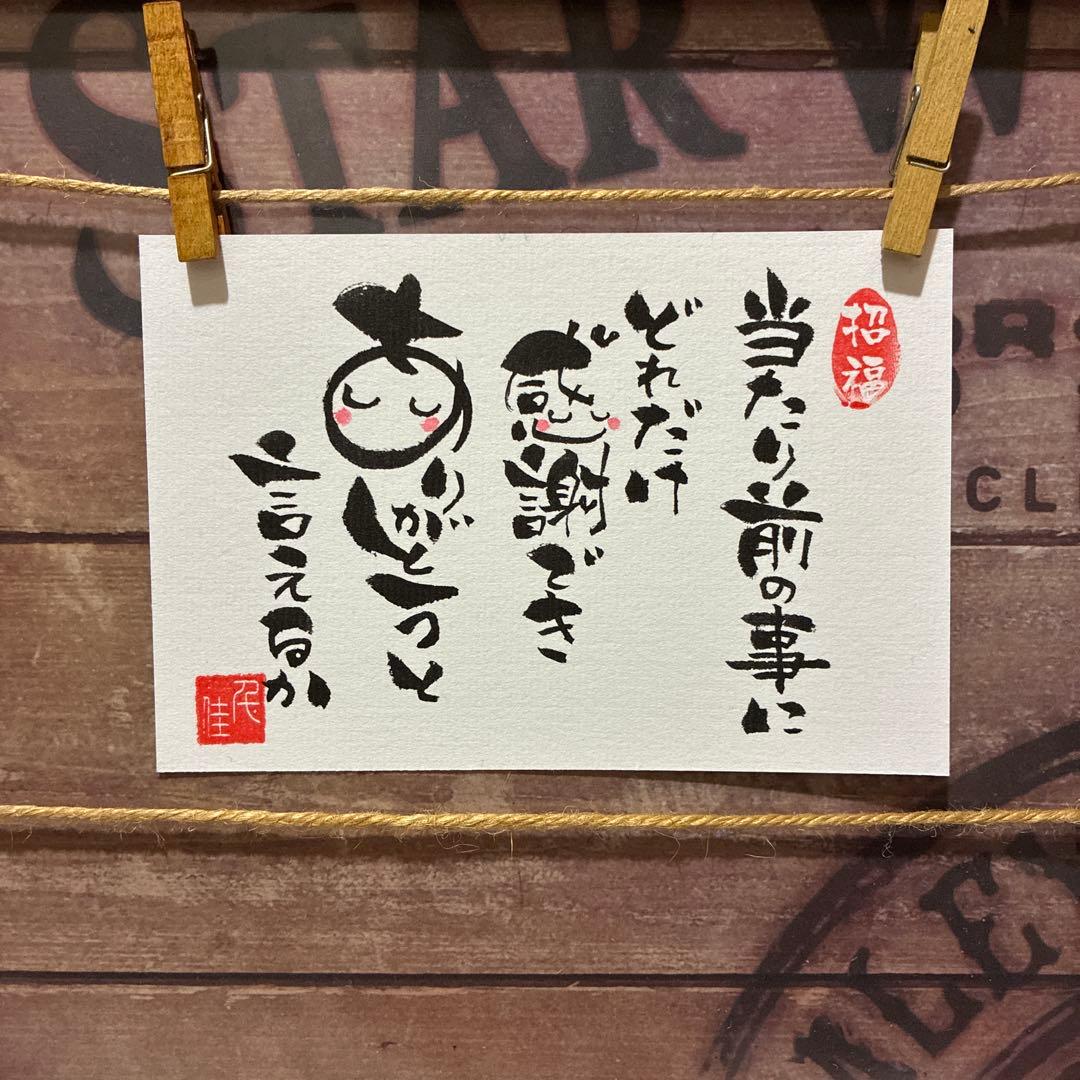 招福
当たり前の事に
どれだけ
感謝でき
ありがとうと
言えるか
STAR W
CL